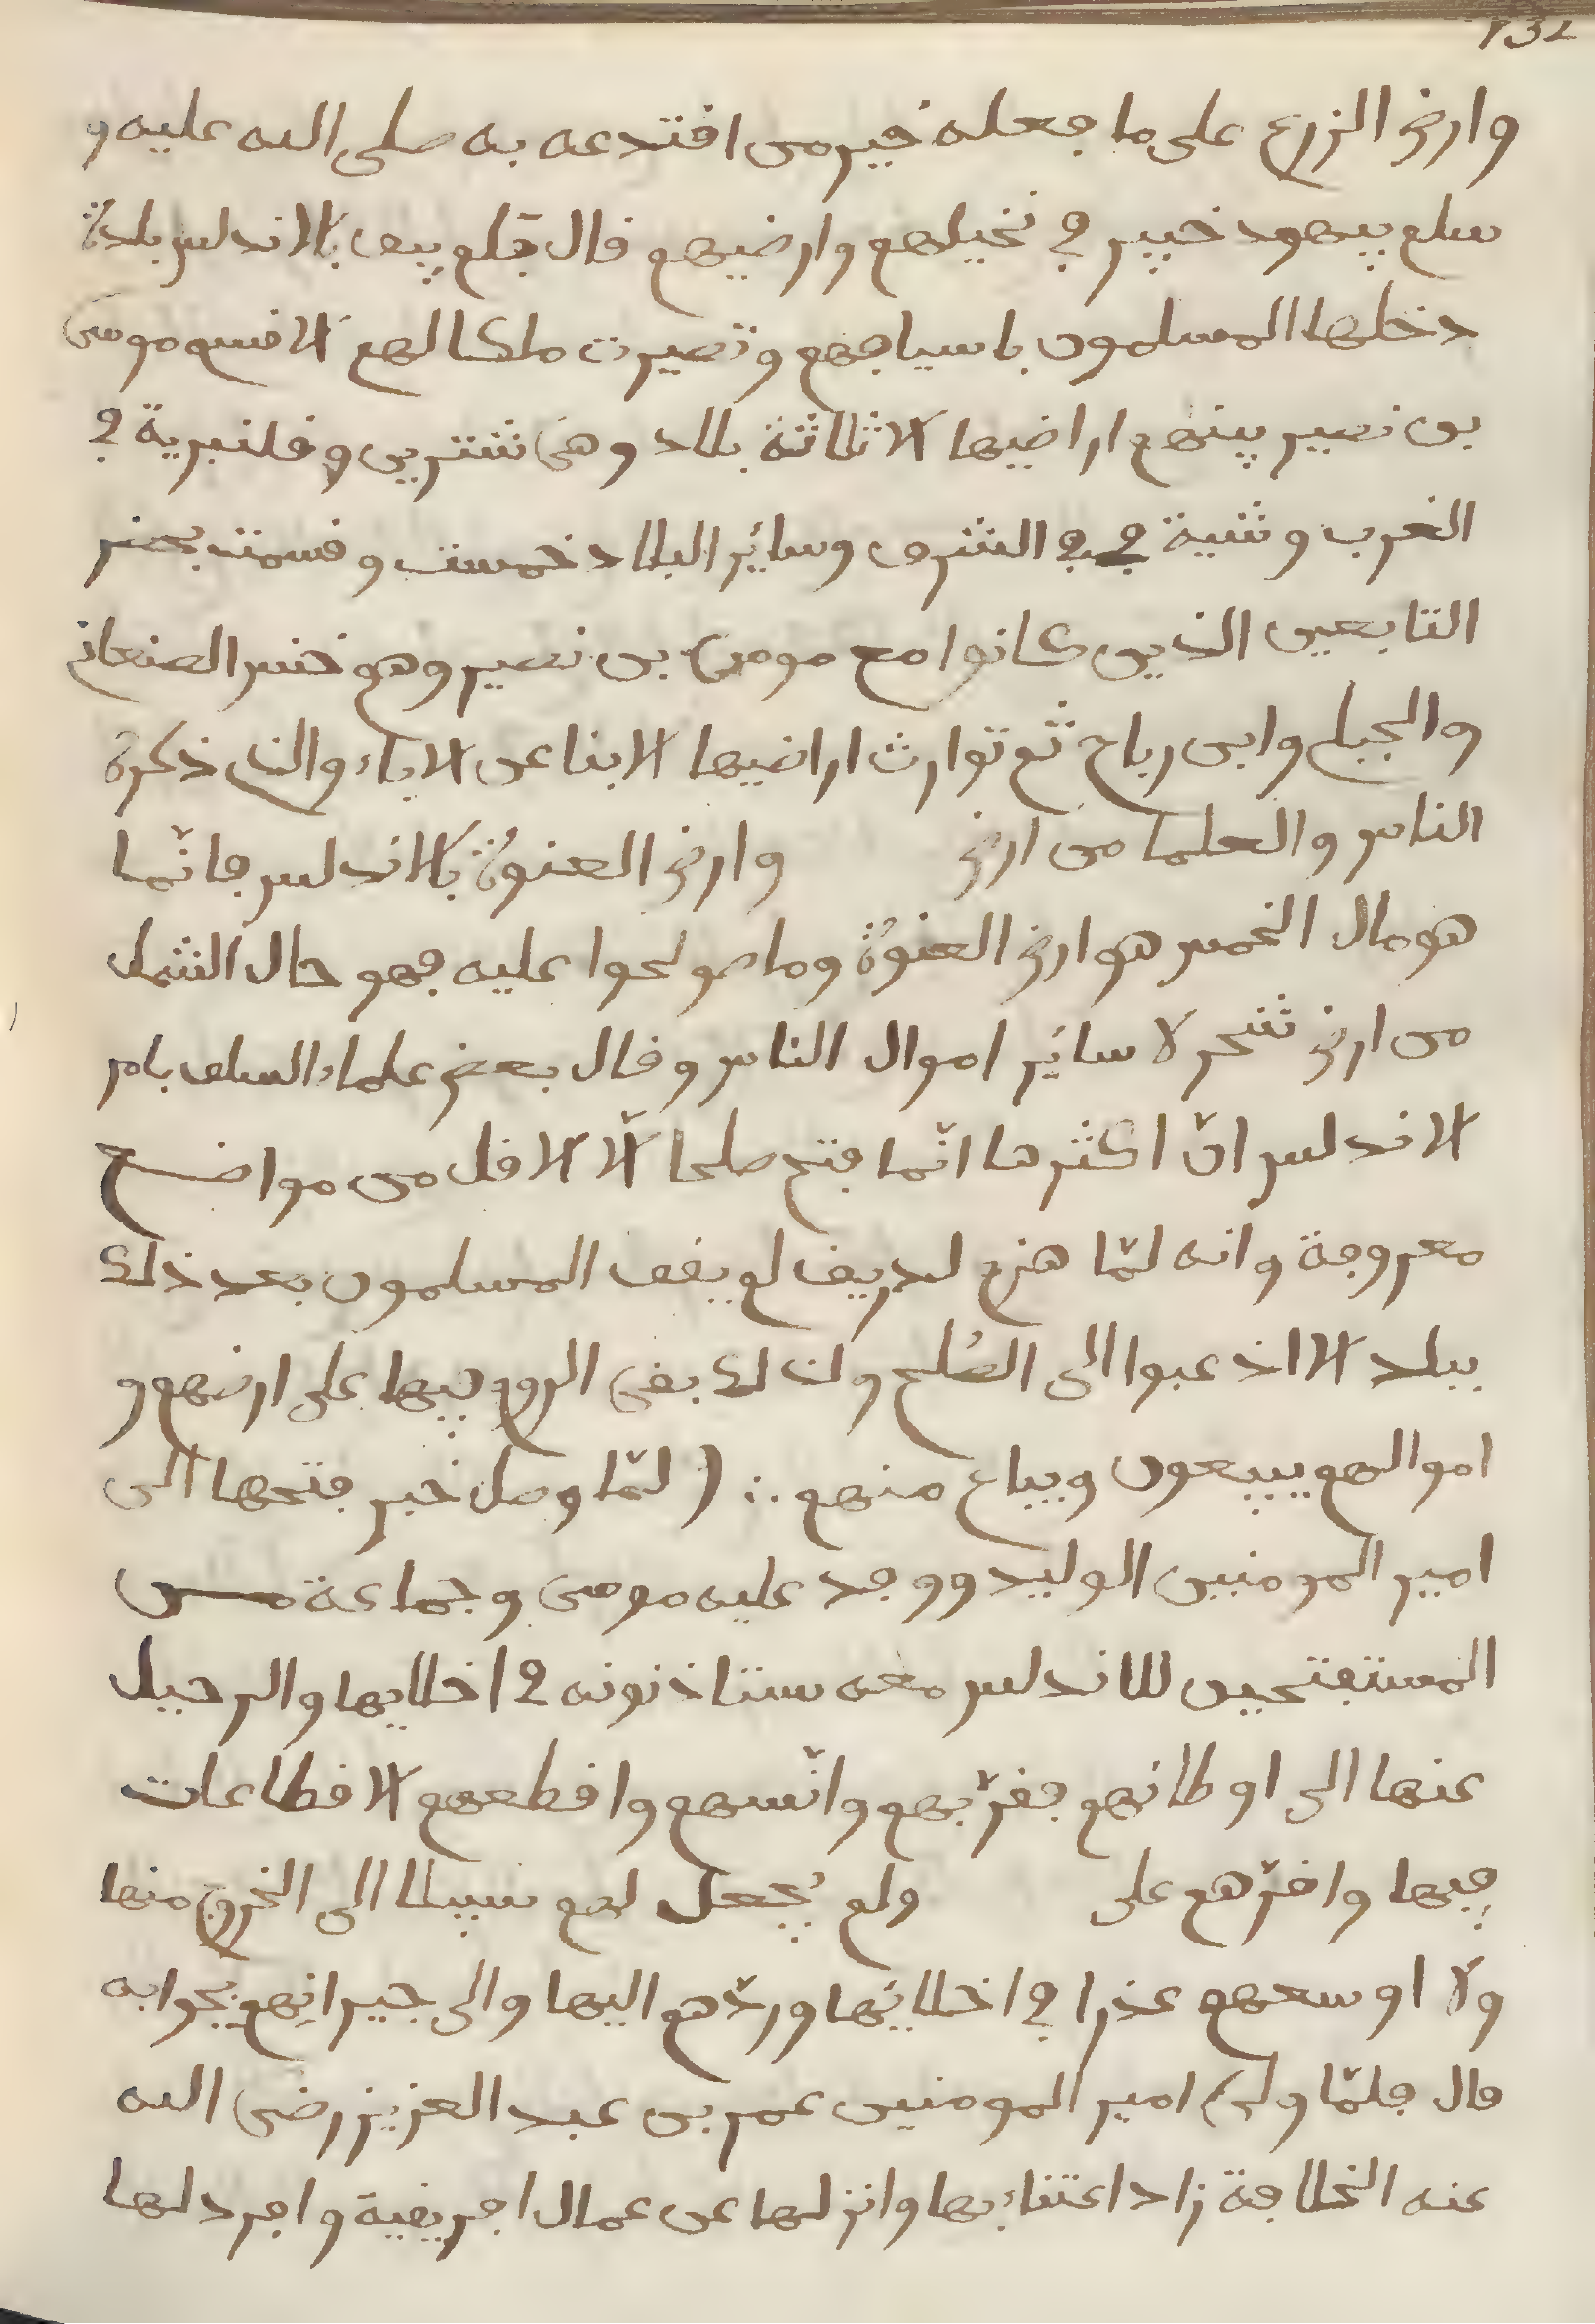 132
وارض الزرع على ما جعله خير من اقتدعه به صلى الله عليه و
سلم بيهود خيبر في نخيلهم وارضيهم قال فلم يبق بالاندلس بلدة
دخلها المسلمون باسيافهم وتصيرت ملكا لهم الا قسم موسى
بن نصير بينهم اراضيها الا ثلاثة بلاد وهى شنترين وقلنبرية في
الغرب وشية في الشرق وسائر البلاد خمست وقسمت بمحضر
التابعين الذين كانوا مع موسى بن نصير وهم حنش الصنعاني
والجبلي وابن رباح ثم توارث اراضيها الابنا عن الاباء والذى ذكره
الناس والعلما من ارض وارض العنوة بالاندلس فانّما
هو مال الخمس هو ارض العنوة وما صولحوا عليه فهو حال الشمل
من ارض شجر لا سائر اموال الناس وقال بعض علماء السلف بامر
الاندلس انّ اكثرها انّما فتح صلحا الّا الاقل من مواضع
معروفة وانه لمّا هزم لدريف لم يقف المسلمون بعد ذلك
ببلد الا اذعبوا الى الصُلح ولذلك بقى الروم فيها على ارضهم و
اموالهم يبيعون ويباع منهم ∴ ( لمّا وصل خبر فتحها الى
امير المومنين الوليد ووفد عليه موسى وجماعة مـن
المستفتحين للاندلس معه ستاذنونه في اخلايها والرحيل
عنها الى اوطانهم فقرّبهم وانّسهم واقطعهم الاقطاعات
فيها واقرّهم على ولم يُجعل لهم سبيلا الى الخروج منها
ولا اوسعهم عذرا في اخلائها وردّهم اليها والى جيرانهم بجوابه
قال فلمّا ولى امير المومنين عمر بن عبد العزيز رضى الله
عنه الخلافة زاد اعتناء بها وانزلها عن عمال افريقية وافرد لها